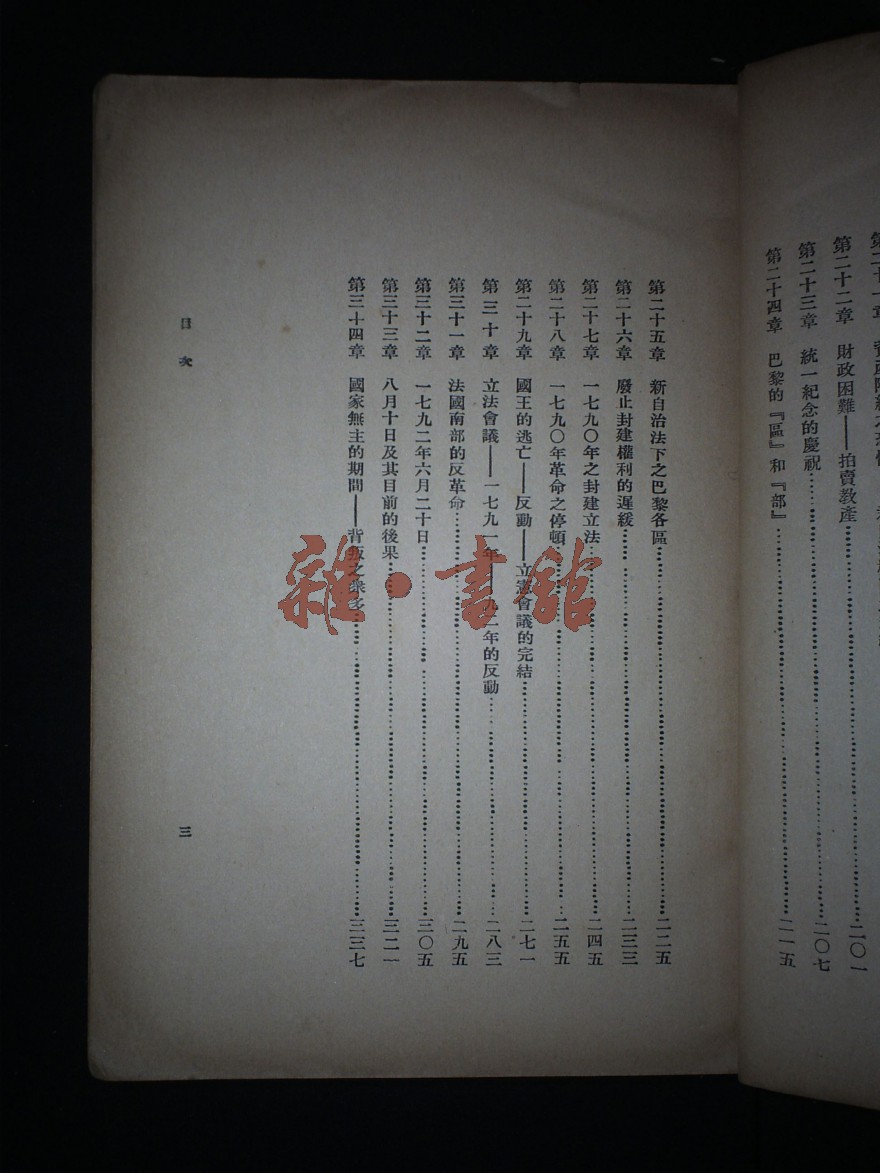 第二十二章　財政困難——拍賣教產……二〇一
第二十三章　統一紀念的慶祝……二〇七
第二十四章　巴黎的『區』和『部』……二一五
第二十五章　新自治法下之巴黎各區……二二五
第二十六章　廢止封建權利的遲緩……二三三
第二十七章　一七九〇年之封建立法……二四五
第二十八章　一七九〇年革命之停頓……二五五
第二十九章　國王的逃亡——反動——立憲會議的完結……二七一
第三十章　立法會議——一七九一年——九二年的反動……二八三
第三十一章　法國南部的反革命……二九五
第三十二章　一七九二年六月二十日……三〇五
第三十三章　八月十日及其目前的後果……三二一
第三十四章　國家無主的期間——背叛之衆多……三三七
目次
三
雜·書館